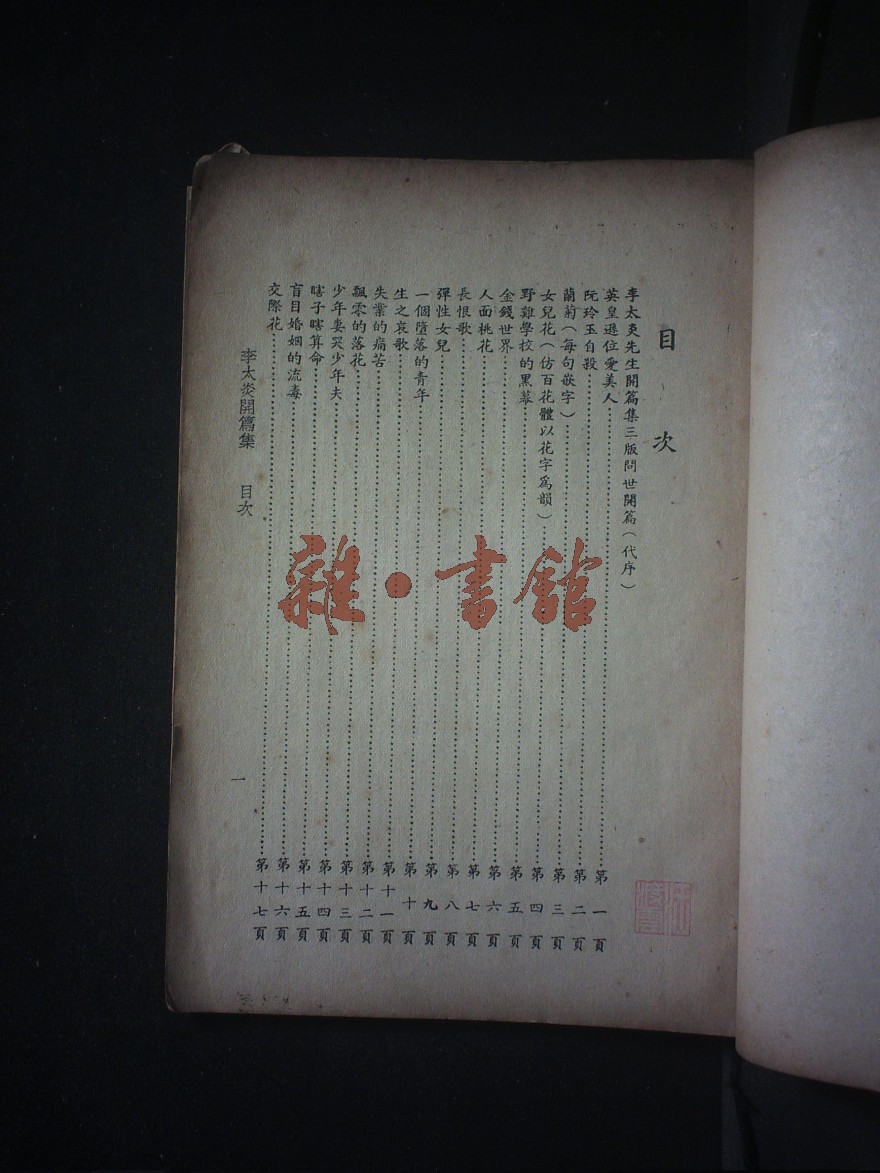 目次
李太炎先生開篇集三版問世開篇(代序)
英皇遜位愛美人……第一頁
阮玲玉自殺……第二頁
蘭菊(每句嵌字)……第三頁
女兒花(仿百花體以花字爲韻)……第四頁
野雞學校的黑幕……第五頁
金錢世界……第六頁
人面桃花……第七頁
長恨歌……第八頁
彈性女兒……第九頁
一個墮落的青年……第十頁
生之哀歌……第十一頁
失業的痛苦……第十二頁
飄零的落花……第十三頁
少年妻哭少年夫……第十四頁
瞎子瞎算命……第十五頁
盲目婚姻的流毒……第十六頁
交際花……第十七頁
李太炎開篇集 目次
一
雜·書館